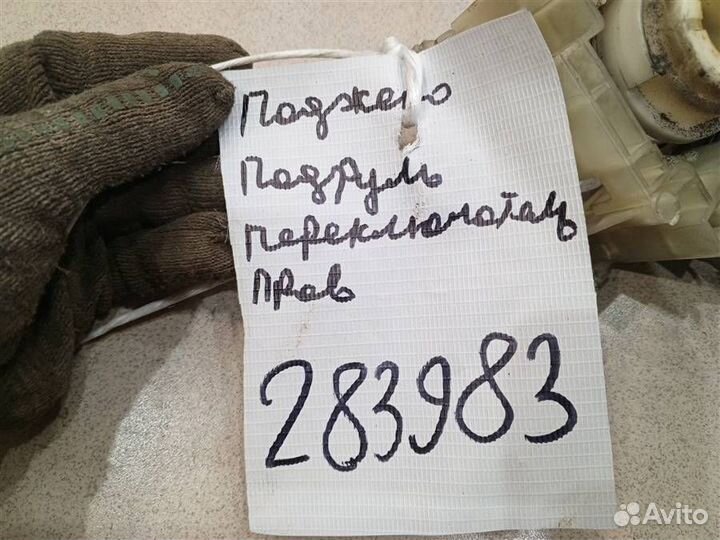 Паджеро
Подруль
Переключатель
Прав
283983
Avito